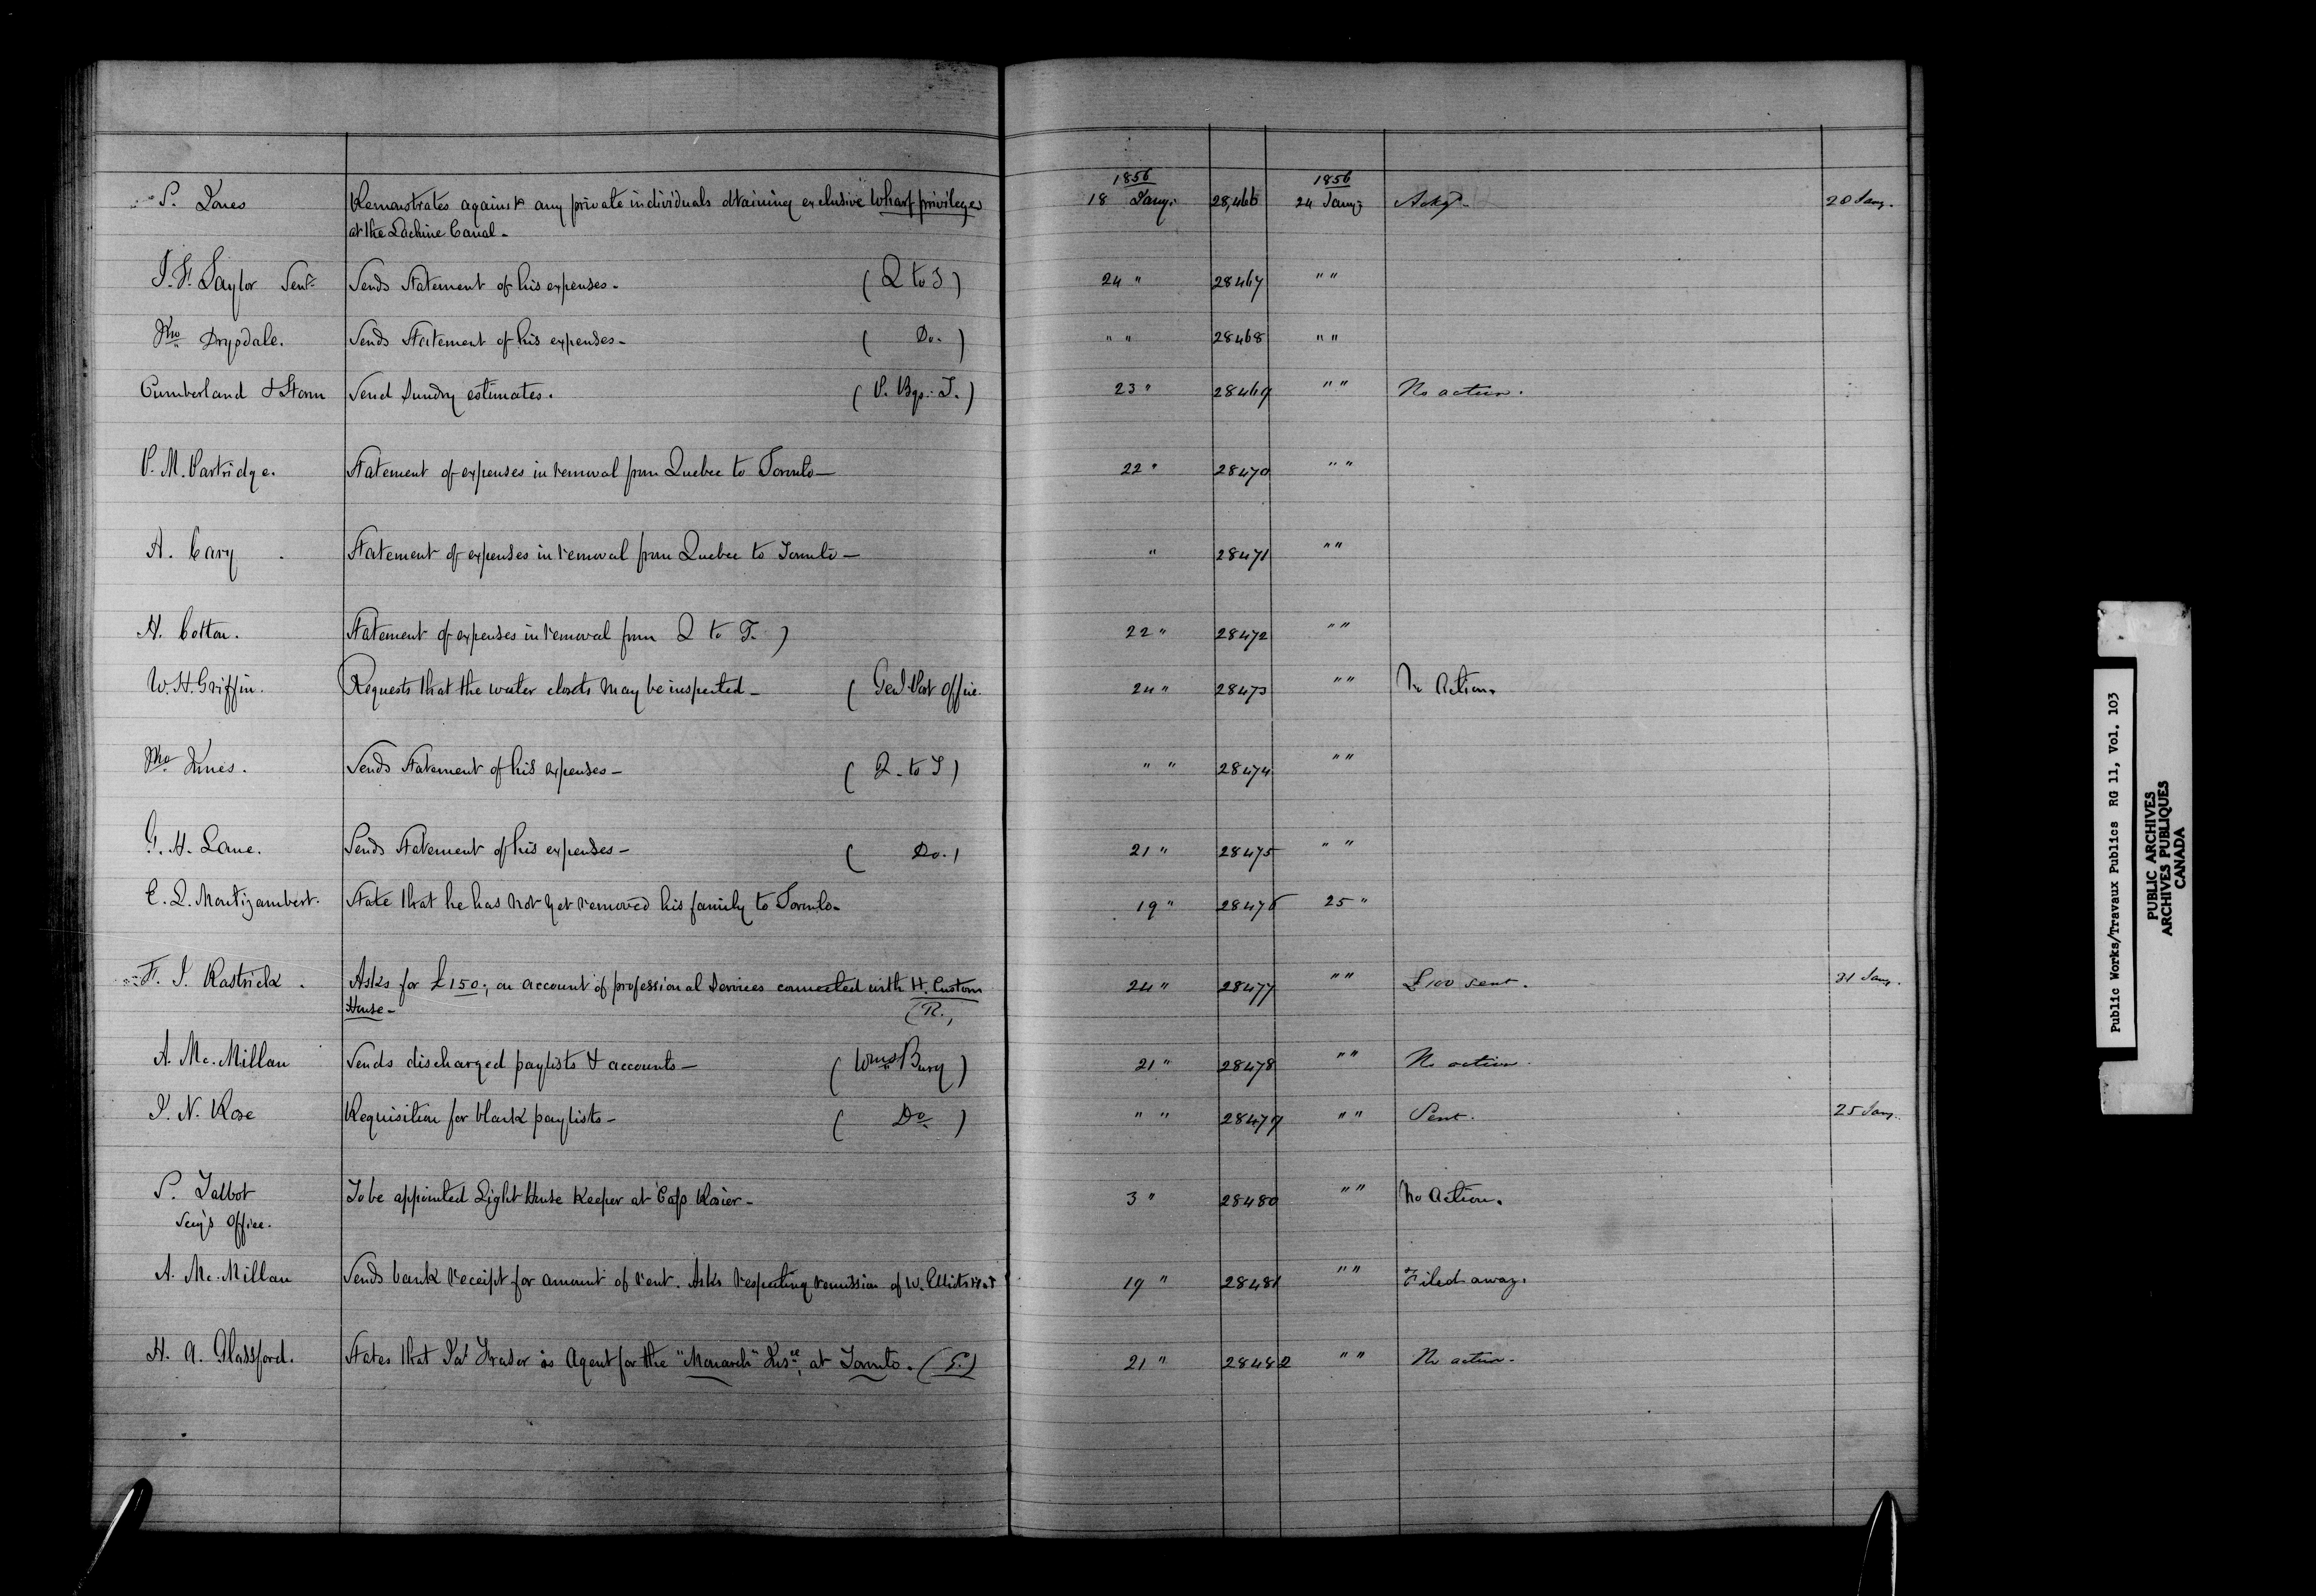 1856 1856
S. Jones Remonstrates against any private individuals obtaining exclusive wharf privileges 18 Jany. 28,466 24 Jany. Ackgd. 28 Jany.
at the Lachine Canal -
J. F. Taylor Senr. Sends Statement of his expenses - (Q to T) 24 " 28467 " "
Jno Drysdale. Sends Statement of his expenses - ( Do. ) " " 28468 " "
Cumberland & Storm Send Sundry estimates. (P. Bgs. T.) 23 " 28469 " " No action.
P. M. Partridge. Statement of expenses in removal from Quebec to Toronto — 22 " 28470 " "
A. Cary Statement of expenses in removal from Quebec to Toronto — " 28471 " "
H. Cotton. Statement of expenses in removal from Q to T. ) 22 " 28472 " "
W. H. Griffin. Requests that the water closets may be inspected - ( Genl Post Office. 24 " 28473 " " No Action.
Jno Innes. Sends Statement of his expenses - ( Q. to T ) " " 28474 " "
G. H. Lane. Sends Statement of his expenses - ( Do. ) 21 " 28475 " "
E. L. Montizambert. State that he has not yet removed his family to Toronto - 19 " 28476 25 "
F. J. Rastrick. Asks for £150; on account of professional Services connected with H. Custom 24 " 28477 " " £100 sent. 31 Jany.
House - (R.)
A. Mc.Millan Sends discharged paylists & accounts - ( Wms Burg ) 21 " 28478 " " No action.
J. N. Rose Requisition for blank paylists - ( Do ) " " 28479 " " Sent. 25 Jany.
S. Talbot To be appointed Light House Keeper at Cap Rosier - 3 " 28480 " " No Action.
Secy's Office.
A. Mc.Millan Sends bank receipt for amount of rent. Asks respecting remission of W. Elliots 19 " 28481 " " Filed away.
H. A. Glassford. States that Jas Fraser is Agent for the "Monarch" Inse. at Toronto. 21 " 28482 " " No action.
Public Works/Travaux Publics RG 11, Vol. 103
PUBLIC ARCHIVES
ARCHIVES PUBLIQUES
CANADA